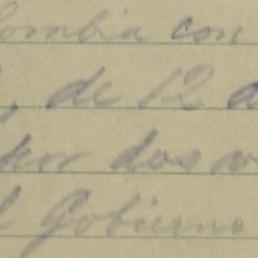 lombia con
, de 12 a
por dos v
l Gobierno